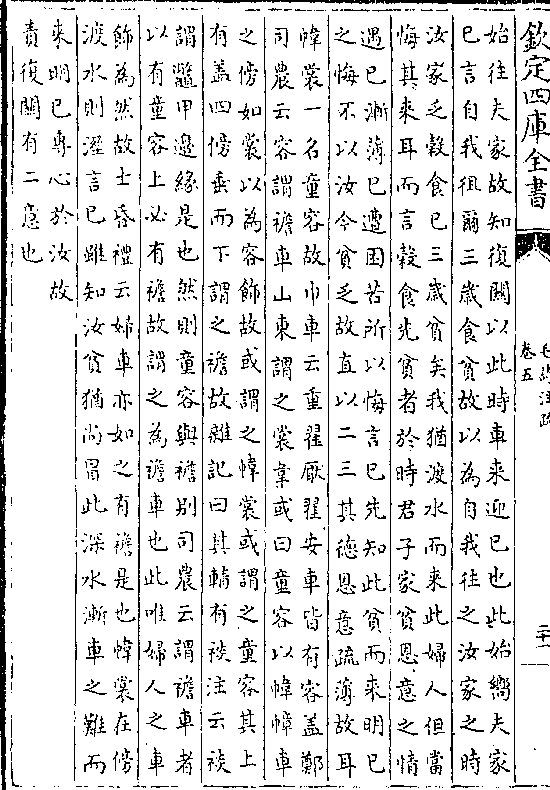 欽定四庫全書
毛詩注疏
卷五
三十一
始往夫家故知復關以此時車来迎已也此始嚮夫家
已言自我徂爾三歲食貧故以為自我往之汝家之時
汝家乏穀食已三歲貧矣我猶渡水而来此婦人但當
悔其来耳而言穀食先貧者於時君子家貧恩意之情
遇已漸薄已遭困苦所以悔言已先知此貧而来明已
之悔不以汝今貧乏故直以二三其德恩意疏薄故耳
幃裳一名童容故巾車云重翟厭翟安車皆有容盖鄭
司農云容謂襜車山東謂之裳幃或曰童容以幃幛車
之傍如裳以為容飾故或謂之幃裳或謂之童容其上
有盖四傍垂而下謂之襜故雜記曰其輤有裧注云裧
謂鼈甲邊緣是也然則童容與襜別司農云謂襜車者
以有童容上必有襜故謂之為襜車也此唯婦人之車
飾為然故士昏禮云婦車亦如之有襜是也幃裳在傍
渡水則溼言已雖知汝貧猶尚冒此深水漸車之難而
来明已專心於汝故
責復關有二意也